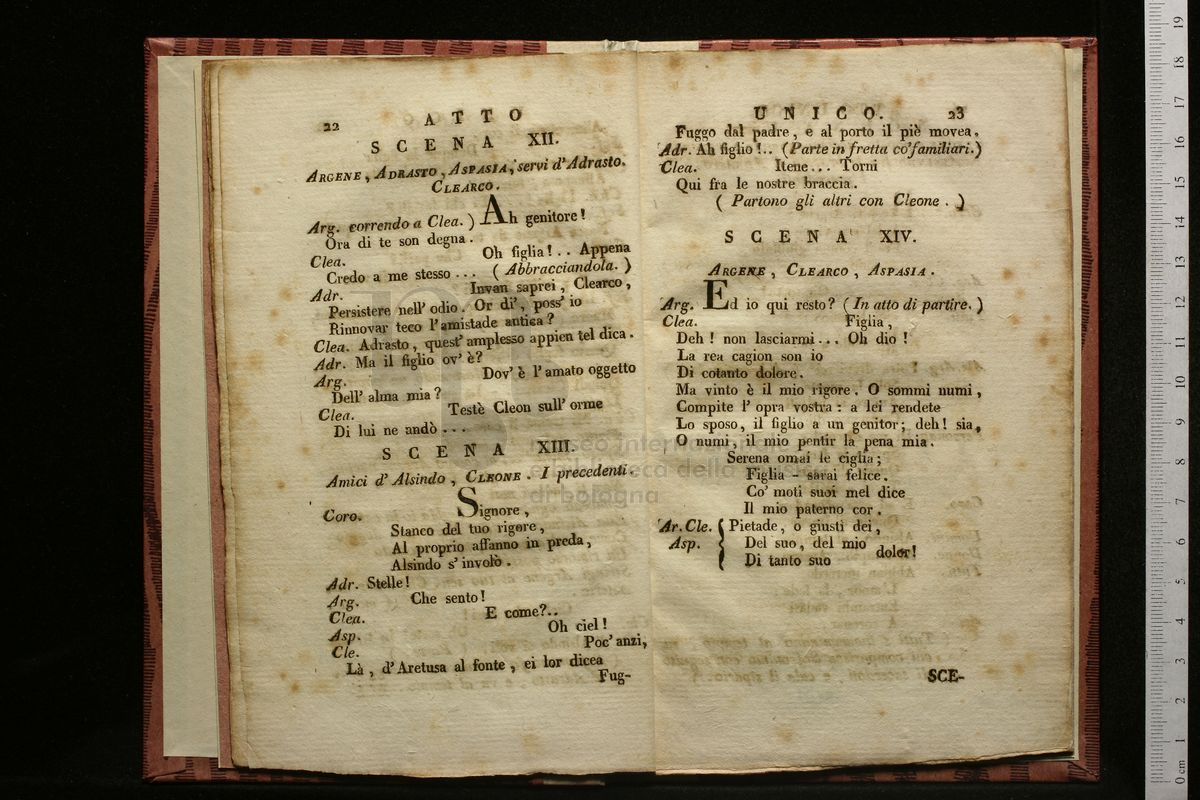 22
ATTO
SCENA XII.
ARGENE, ADRASTO, ASPASIA, servi d'Adrasto.
CLEARCO.
Arg. correndo a Clea.) Ah genitore!
Ora di te son degna.
Clea. Oh figlia!.. Appena
Credo a me stesso... (Abbracciandola.)
Adr. Invan saprei, Clearco,
Persistere nell' odio. Or di', poss' io
Rinnovar teco l'amistade antica?
Clea. Adrasto, quest' amplesso appien tel dica.
Adr. Ma il figlio ov' è?
Arg. Dov' è l'amato oggetto
Dell' alma mia?
Clea. Testè Cleon sull' orme
Di lui ne andò...
SCENA XIII.
Amici d' Alsindo, CLEONE. I precedenti.
Coro. Signore,
Stanco del tuo rigore,
Al proprio affanno in preda,
Alsindo s' involò.
Adr. Stelle!
Arg. Che sento!
Clea. E come?..
Asp. Oh ciel!
Cle. Poc' anzi,
Là, d' Aretusa al fonte, ei lor dicea
Fug-
UNICO. 23
Fuggo dal padre, e al porto il piè movea.
Adr. Ah figlio!.. (Parte in fretta co' familiari.)
Clea. Itene... Torni
Qui fra le nostre braccia.
(Partono gli altri con Cleone.)
SCENA XIV.
ARGENE, CLEARCO, ASPASIA.
Arg. Ed io qui resto? (In atto di partire.)
Clea. Figlia,
Deh! non lasciarmi... Oh dio!
La rea cagion son io
Di cotanto dolore.
Ma vinto è il mio rigore. O sommi numi,
Compite l' opra vostra: a lei rendete
Lo sposo, il figlio a un genitor; deh! sia,
O numi, il mio pentir la pena mia.
Serena omai le ciglia;
Figlia - sarai felice.
Co' moti suoi mel dice
Il mio paterno cor.
Ar. Cle. { Pietade, o giusti dei,
Asp. Del suo, del mio dolor!
Di tanto suo
SCE-
museo internazionale
e biblioteca della musica
di bologna
0 cm 1 2 3 4 5 6 7 8 9 10 11 12 13 14 15 16 17 18 19